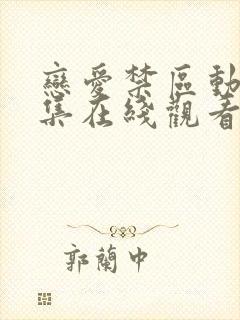 戀愛禁區動
集在綫觀看
郭蘭中